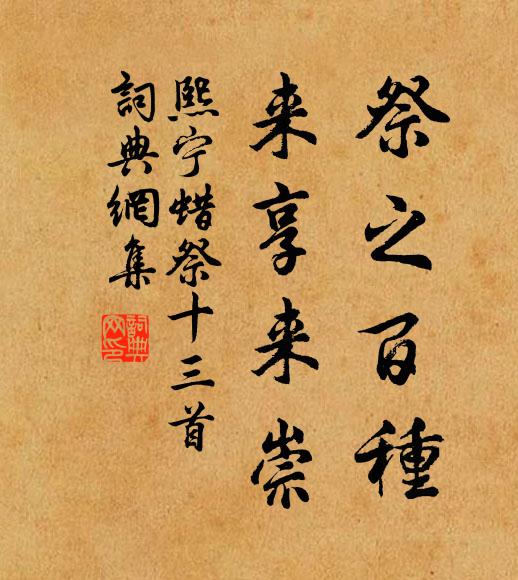 祭之百種
来享来崇
熙宁蜡祭十三首
詞典網集
詞典
网印